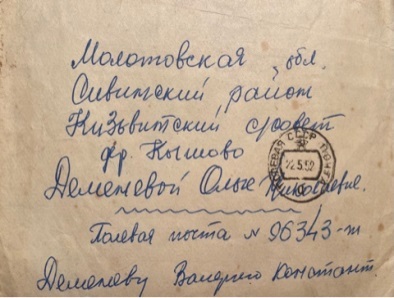 Молотовская обл.
Сивинский район
Кизьвинский с/совет
др. Кышово
Деменевой Ольге Николаевне.
Полевая почта N 96343-ж
Деменеву Валерию Констант.
ПОЛЕВАЯ
СССР
22.5.52